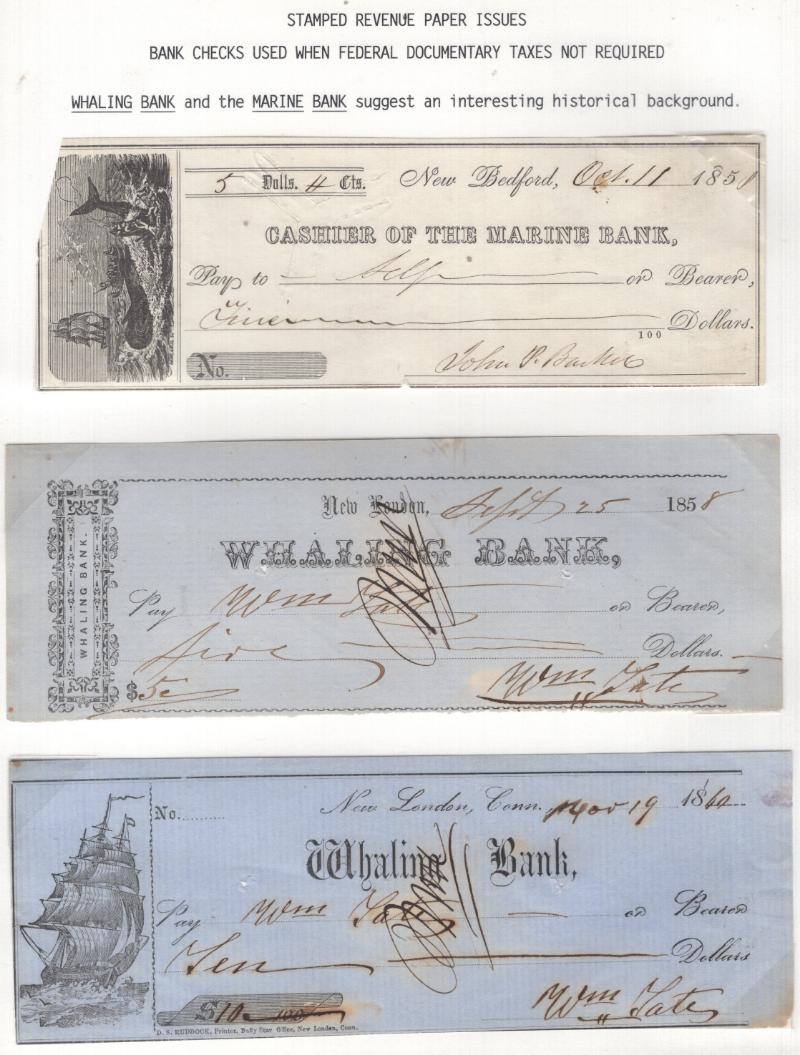 STAMPED REVENUE PAPER ISSUES
BANK CHECKS USED WHEN FEDERAL DOCUMENTARY TAXES NOT REQUIRED
WHALING BANK and the MARINE BANK suggest an interesting historical background.
5 Dolls. 4 Cts. New Bedford, Oct. 11 1858
CASHIER OF THE MARINE BANK,
Pay to Self or Bearer,
Five
100 Dollars.
No.
John P. Barker
New London, Sept 25 1858
WHALING BANK,
WHALING BANK.
Pay Wm Tate or Bearer,
five Dollars.
$5
Wm Tate
No. New London, Conn., Nov 19 1860
Whaling Bank,
Pay Wm Tate or Bearer
Ten Dollars
$10 100
Wm Tate
D. S. RUDDOCK, Printer, Daily Star Office, New London, Conn.